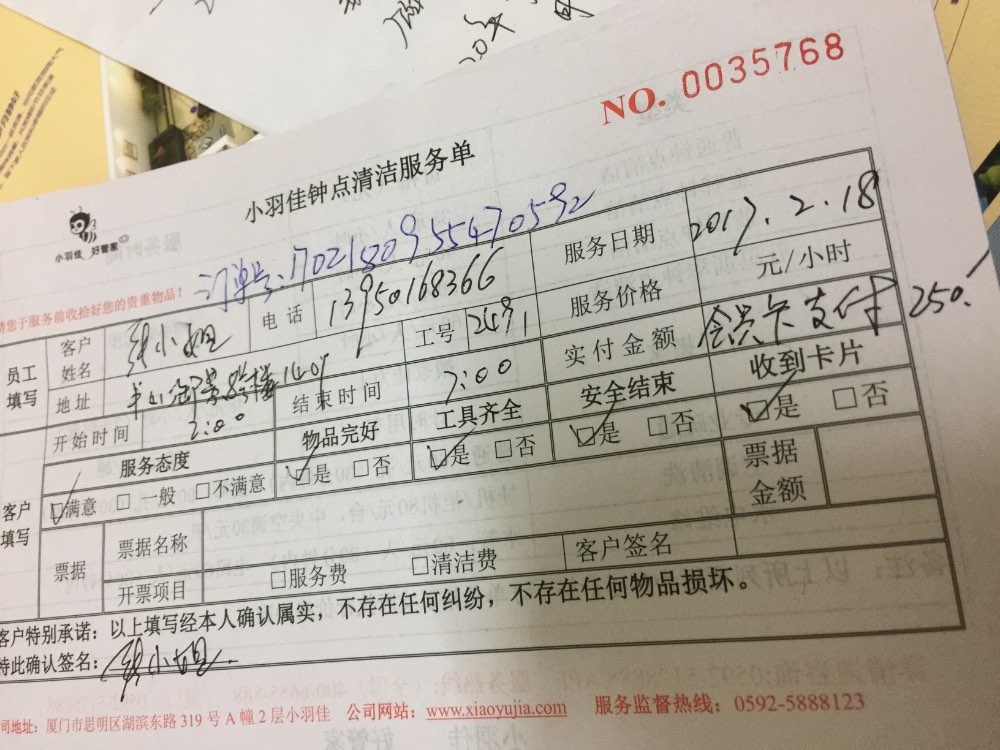 NO. 0035768
小羽佳钟点清洁服务单
小羽佳 好管家
订单号: 1702180955470592
请您于服务前收拾好您的贵重物品!
员工填写 客户姓名 小姐 电话 13950168366 服务日期 2017.2.18
工号 服务价格 元/小时
地址 实付金额 会员卡支付 250.
开始时间 2:0 结束时间 7:00 安全结束 收到卡片
服务态度 物品完好 工具齐全 □是 □否 □是 □否
客户填写 □满意 □一般 □不满意 □是 □否 □是 □否
票据 票据名称 票据金额
开票项目 □服务费 □清洁费 客户签名
客户特别承诺: 以上填写经本人确认属实, 不存在任何纠纷, 不存在任何物品损坏。
特此确认签名: 小姐
公司地址: 厦门市思明区湖滨东路 319 号 A 幢 2 层小羽佳 公司网站: www.xiaoyujia.com 服务监督热线: 0592-5888123